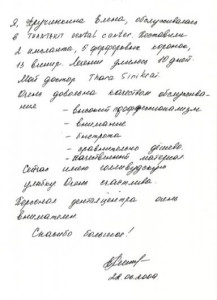 Я, Фручинкина Елена, обслуживалась
в Thantakit dental center. Поставили
2 импланта, 8 фарфоровых коронок,
13 винир. Лечение длилось 10 дней.
Мой доктор Thara Sirikrai.
Очень довольна качеством обслужива-
ния
- высокий профессионализм
- внимание
- быстрота
- сравнительно дёшево
- качественный материал
Сейчас имею голливудскую
улыбку. Очень счастлива.
Персонал центра очень
внимателен
Спасибо большое!